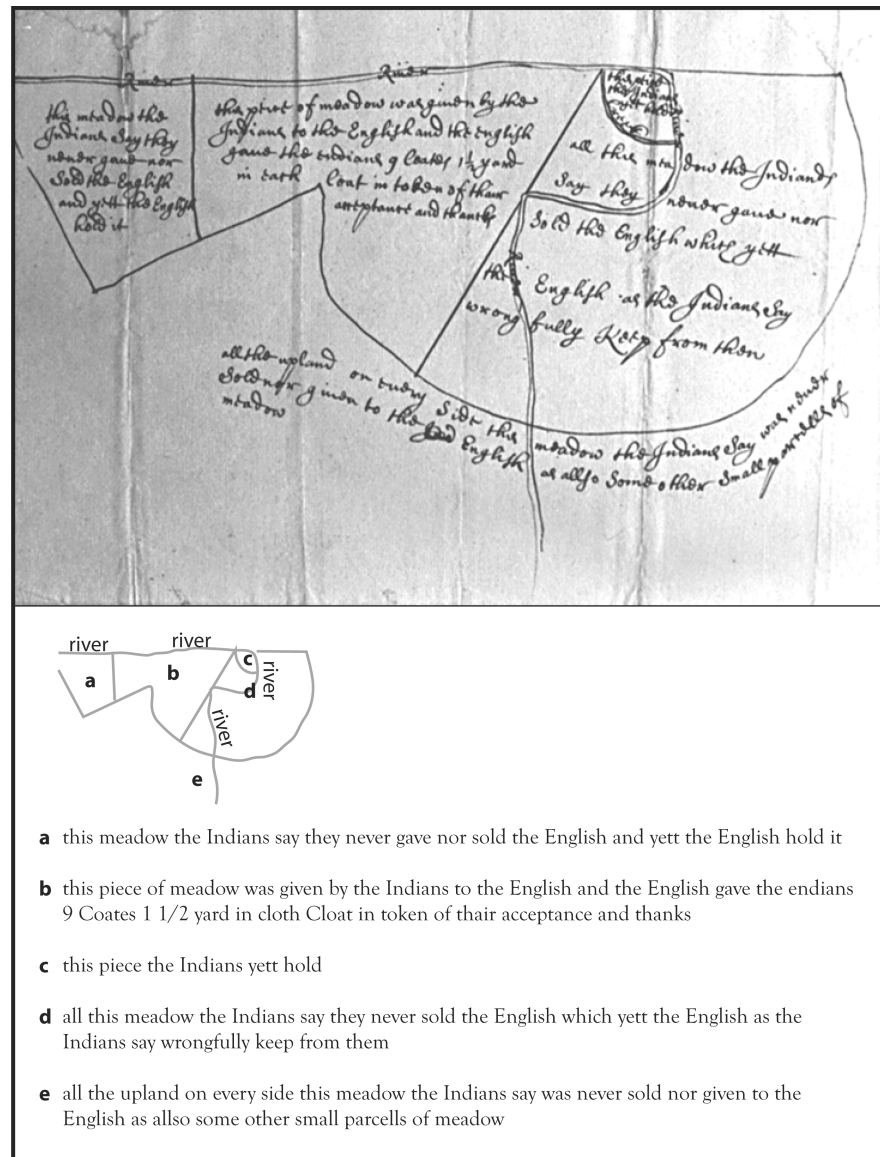 River
River
this meadow the
Indians Say they
never gave nor
Sold the English
and yett the English
hold it
this piece of meadow was given by the
Indians to the English and the english
gave the endians 9 Coates 1½ yard
in each Coat in token of thair
acceptance and thanks
this piece
the Indians
yett hold
all this meadow the Indians
Say they never gave nor
Sold the English which yett
the English as the Indians Say
wrong fully Keep from them
all the upland on every Side this meadow the Indians Say was never
Sold nor given to the English as allso Some other Small parcells of
meadow
river
river
river
river
a
b
c
d
e
a this meadow the Indians say they never gave nor sold the English and yett the English hold it
b this piece of meadow was given by the Indians to the English and the English gave the endians
9 Coates 1 1/2 yard in cloth Cloat in token of thair acceptance and thanks
c this piece the Indians yett hold
d all this meadow the Indians say they never sold the English which yett the English as the
Indians say wrongfully keep from them
e all the upland on every side this meadow the Indians say was never sold nor given to the
English as allso some other small parcells of meadow